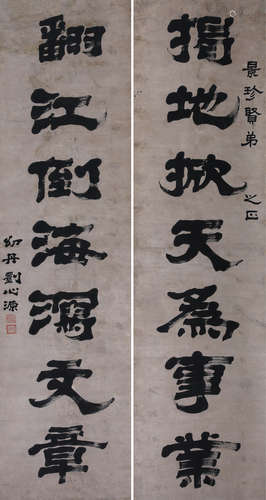 景珍賢弟 之正
揭地掀天為事業
翻江倒海瀉文章
幼丹劉心源